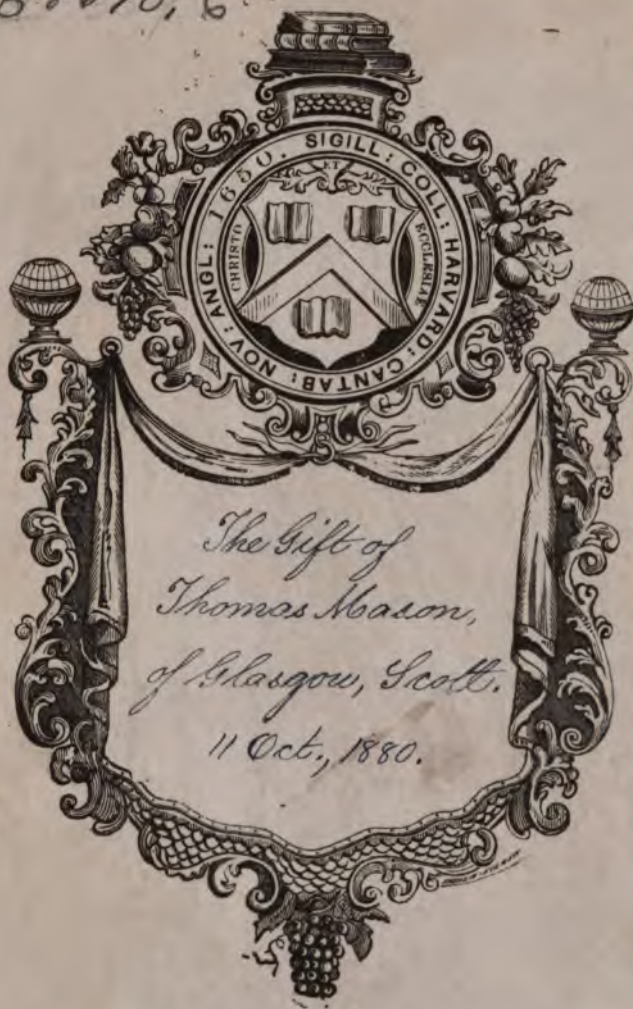 SIGILL: COLL: HARVARD: CANTAB: NOV: ANGL: 1650.
ET
CHRISTO
ECCLESIAE
The Gift of
Thomas Mason,
of Glasgow, Scott.
11 Oct., 1880.